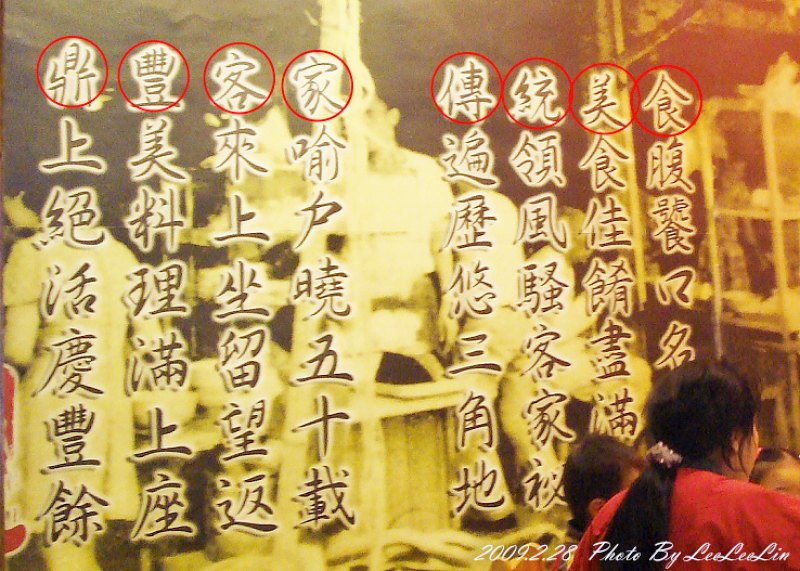 鼎上絕活慶豐餘
豐美料理滿上座
客來上坐留望返
家喻戶曉五十載
傳遍歷悠三角地
統領風騷客家祕
美食佳餚盡滿
食腹饕口名
2009.2.28 Photo By LeeLeeLin